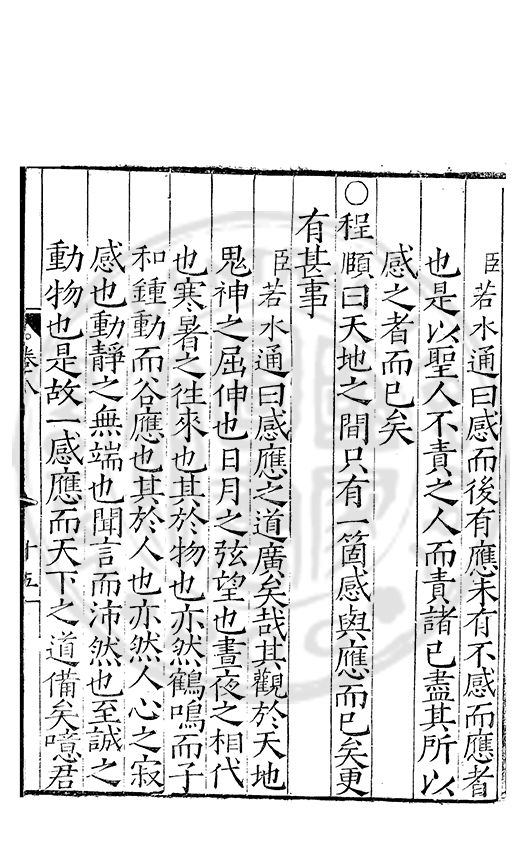 臣若水通曰感而後有應未有不感而應者
也是以聖人不責之人而責諸已盡其所以
感之者而已矣
○程頤曰天地之間只有一箇感與應而已矣更
有甚事
臣若水通曰感應之道廣矣哉其觀於天地
鬼神之屈伸也日月之弦望也晝夜之相代
也寒暑之往來也其於物也亦然鶴鳴而子
和鍾動而谷應也其於人也亦然人心之寂
感也動靜之無端也聞言而沛然也至誠之
動物也是故一感應而天下之道備矣噫君
卷八
十五